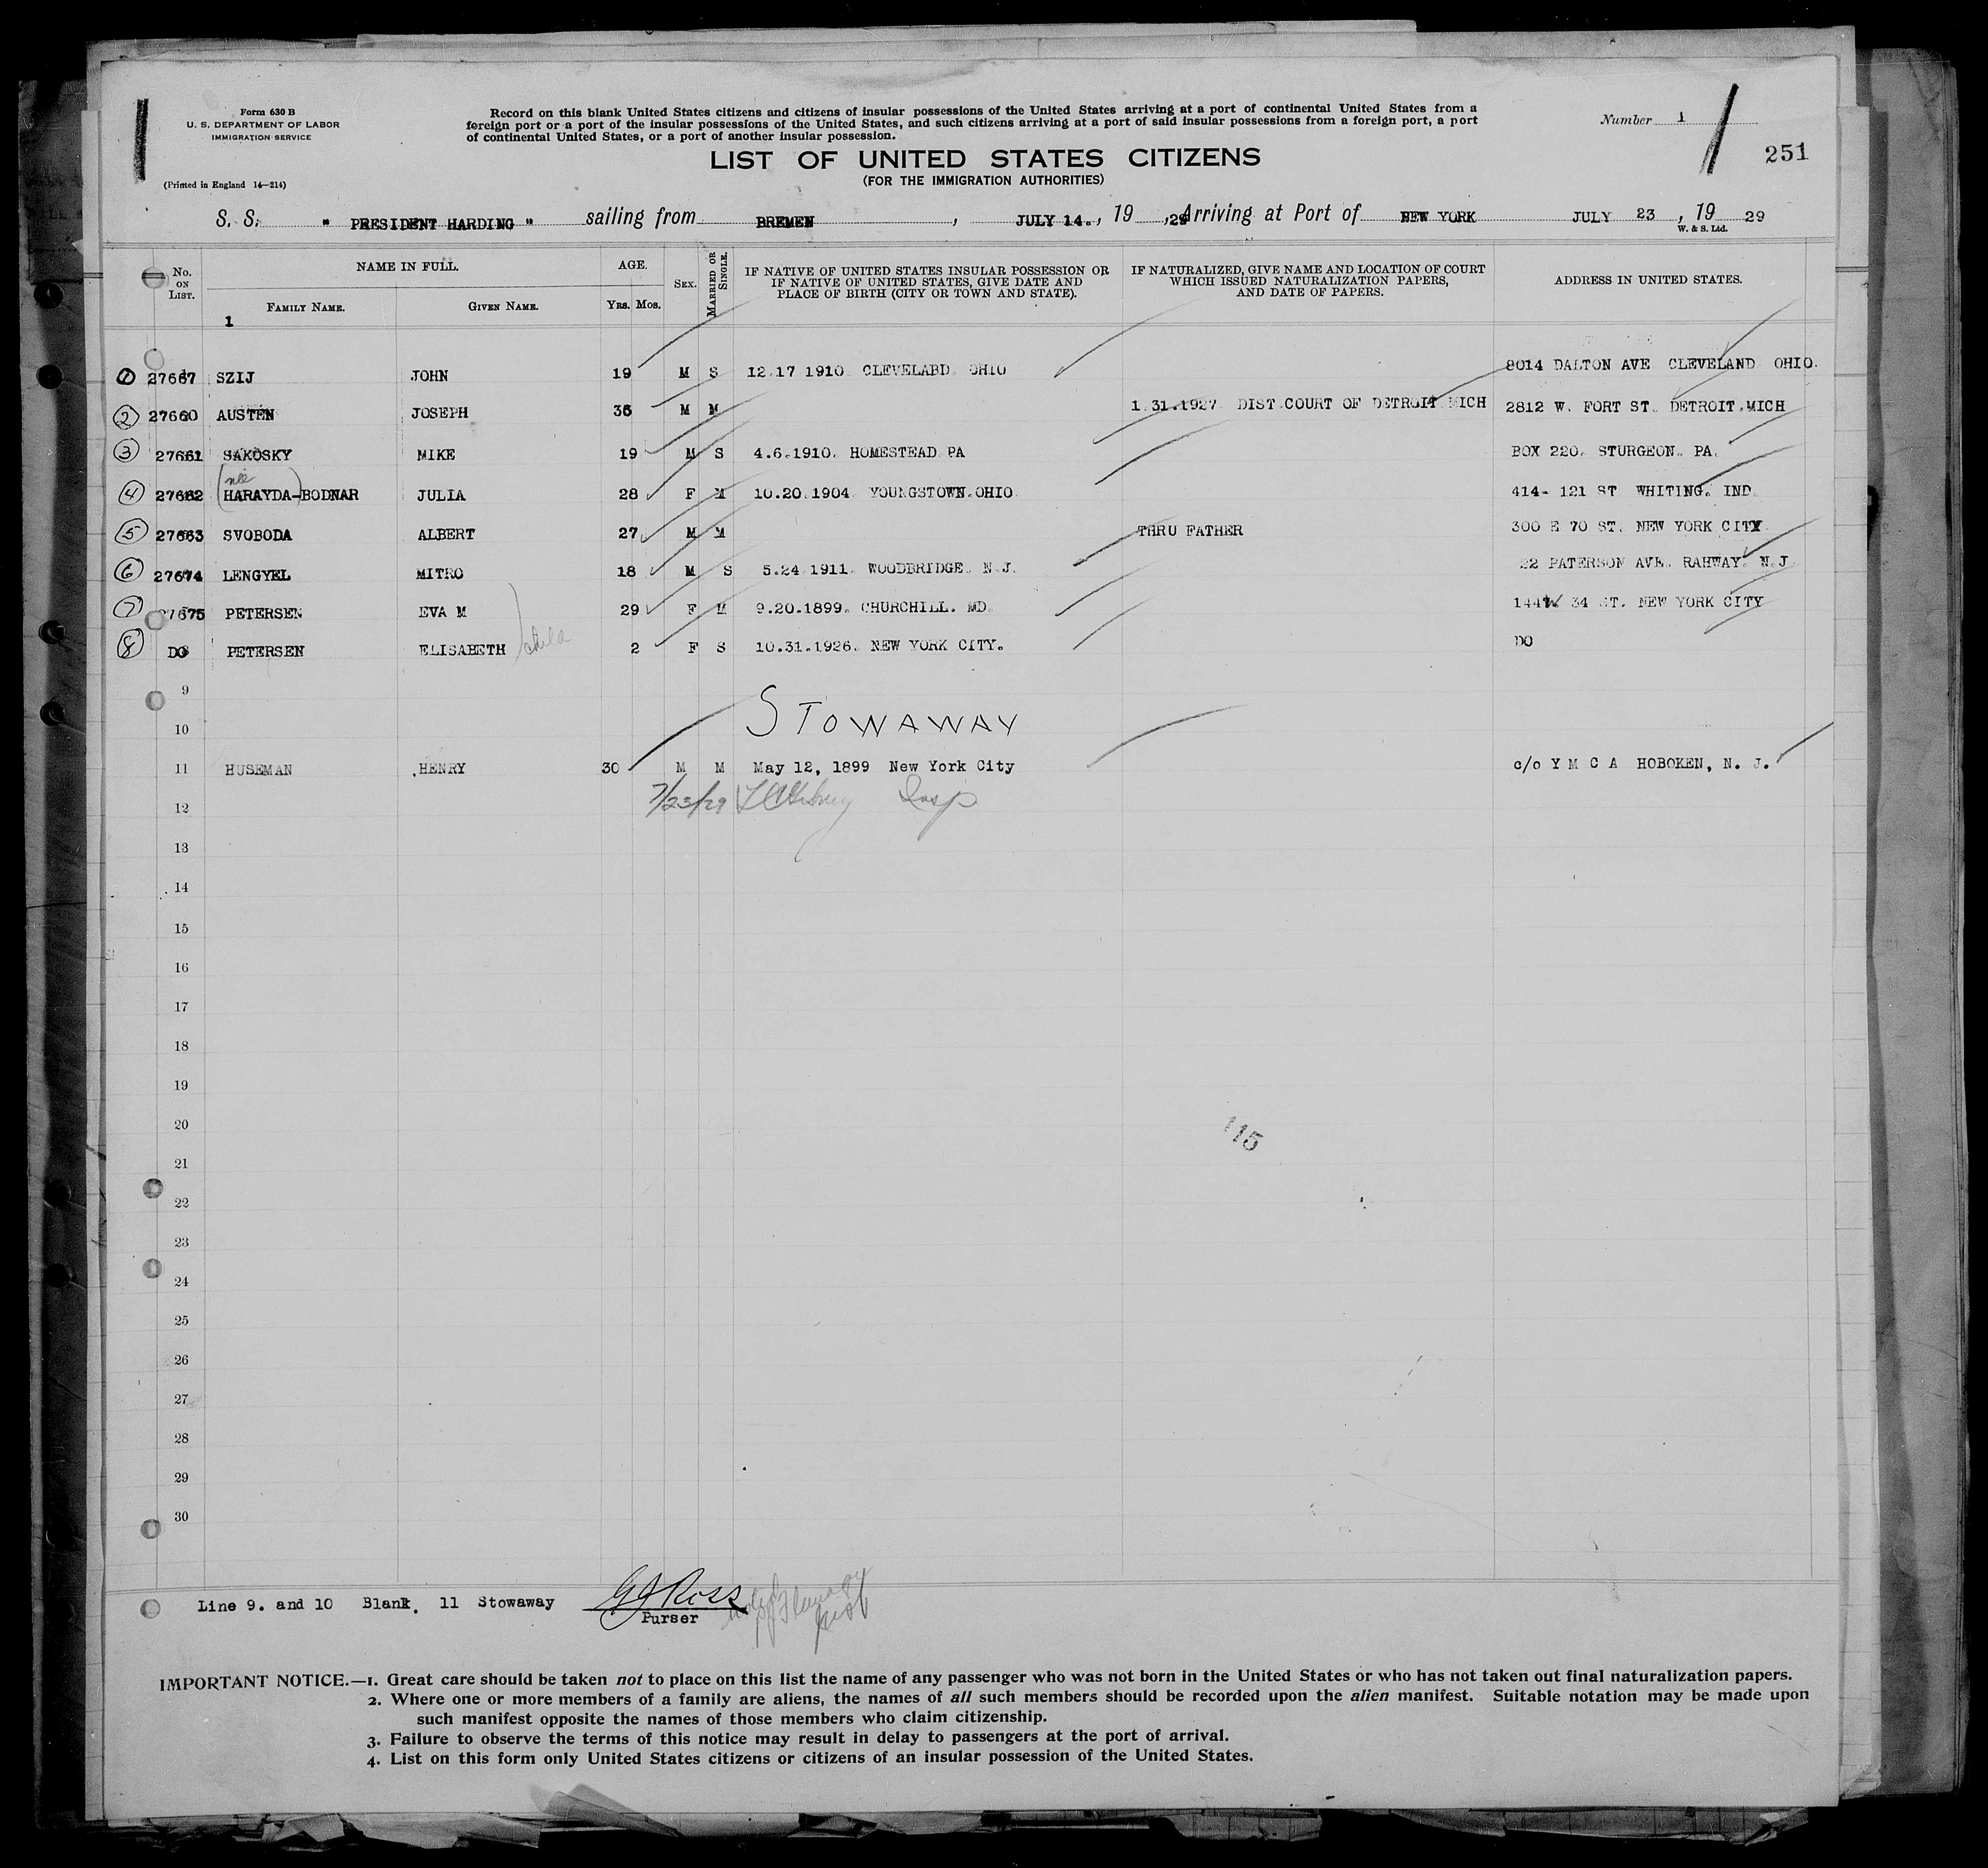 Form 630 B
U. S. DEPARTMENT OF LABOR
IMMIGRATION SERVICE
(Printed in England 14—214)
Record on this blank United States citizens and citizens of insular possessions of the United States arriving at a port of continental United States from a
foreign port or a port of the insular possessions of the United States, and such citizens arriving at a port of said insular possessions from a foreign port, a port
of continental United States, or a port of another insular possession.
Number 1
251
LIST OF UNITED STATES CITIZENS
(FOR THE IMMIGRATION AUTHORITIES)
S. S. " PRESIDENT HARDING " sailing from BREMEN, JULY 14., 19 29, Arriving at Port of NEW YORK JULY 23, 19 29
W. & S. Ltd.
No. ON LIST. NAME IN FULL. FAMILY NAME. GIVEN NAME. AGE. YRS. MOS. SEX. MARRIED OR SINGLE. IF NATIVE OF UNITED STATES INSULAR POSSESSION OR IF NATIVE OF UNITED STATES, GIVE DATE AND PLACE OF BIRTH (CITY OR TOWN AND STATE). IF NATURALIZED, GIVE NAME AND LOCATION OF COURT WHICH ISSUED NATURALIZATION PAPERS, AND DATE OF PAPERS. ADDRESS IN UNITED STATES.
1
1 27667 SZIJ JOHN 19 M S 12.17 1910 CLEVELABD OHIO 8014 DALTON AVE CLEVELAND OHIO.
2 27660 AUSTEN JOSEPH 36 M M 1.31.1927 DIST.COURT OF DETROIT MICH 2812 W. FORT ST. DETROIT.MICH
3 27661 SAKOSKY MIKE 19 M S 4.6.1910. HOMESTEAD PA BOX 220. STURGEON. PA.
nee
4 27662 (HARAYDA)-BODNAR JULIA 28 F M 10.20.1904 YOUNGSTOWN.OHIO 414- 121 ST WHITING. IND.
5 27663 SVOBODA ALBERT 27 M M THRU FATHER 300 E 70 ST. NEW YORK CITY
6 27674 LENGYEL MITRO 18 M S 5.24 1911. WOODBRIDGE. N.J. 22 PATERSON AVE. RAHWAY. N.J
7 27675 PETERSEN EVA M 29 F M 9.20.1899. CHURCHILL. MD 144 W 34 ST. NEW YORK CITY
8 DO PETERSEN ELISABETH child 2 F S 10.31.1926. NEW YORK CITY. DO
9
STOWAWAY
10
11 HUSEMAN HENRY 30 M M May 12, 1899 New York City c/o Y M C A HOBOKEN, N. J.
7/23/29 Insp
12
13
14
15
16
17
18
19
20
115
21
22
23
24
25
26
27
28
29
30
Line 9. and 10 Blank. 11 Stowaway G J Ross
Purser
IMPORTANT NOTICE.—1. Great care should be taken not to place on this list the name of any passenger who was not born in the United States or who has not taken out final naturalization papers.
2. Where one or more members of a family are aliens, the names of all such members should be recorded upon the alien manifest. Suitable notation may be made upon
such manifest opposite the names of those members who claim citizenship.
3. Failure to observe the terms of this notice may result in delay to passengers at the port of arrival.
4. List on this form only United States citizens or citizens of an insular possession of the United States.